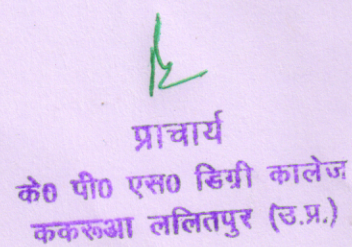 प्राचार्य
के० पी० एस० डिग्री कालेज
ककरूआ ललितपुर (उ.प्र.)